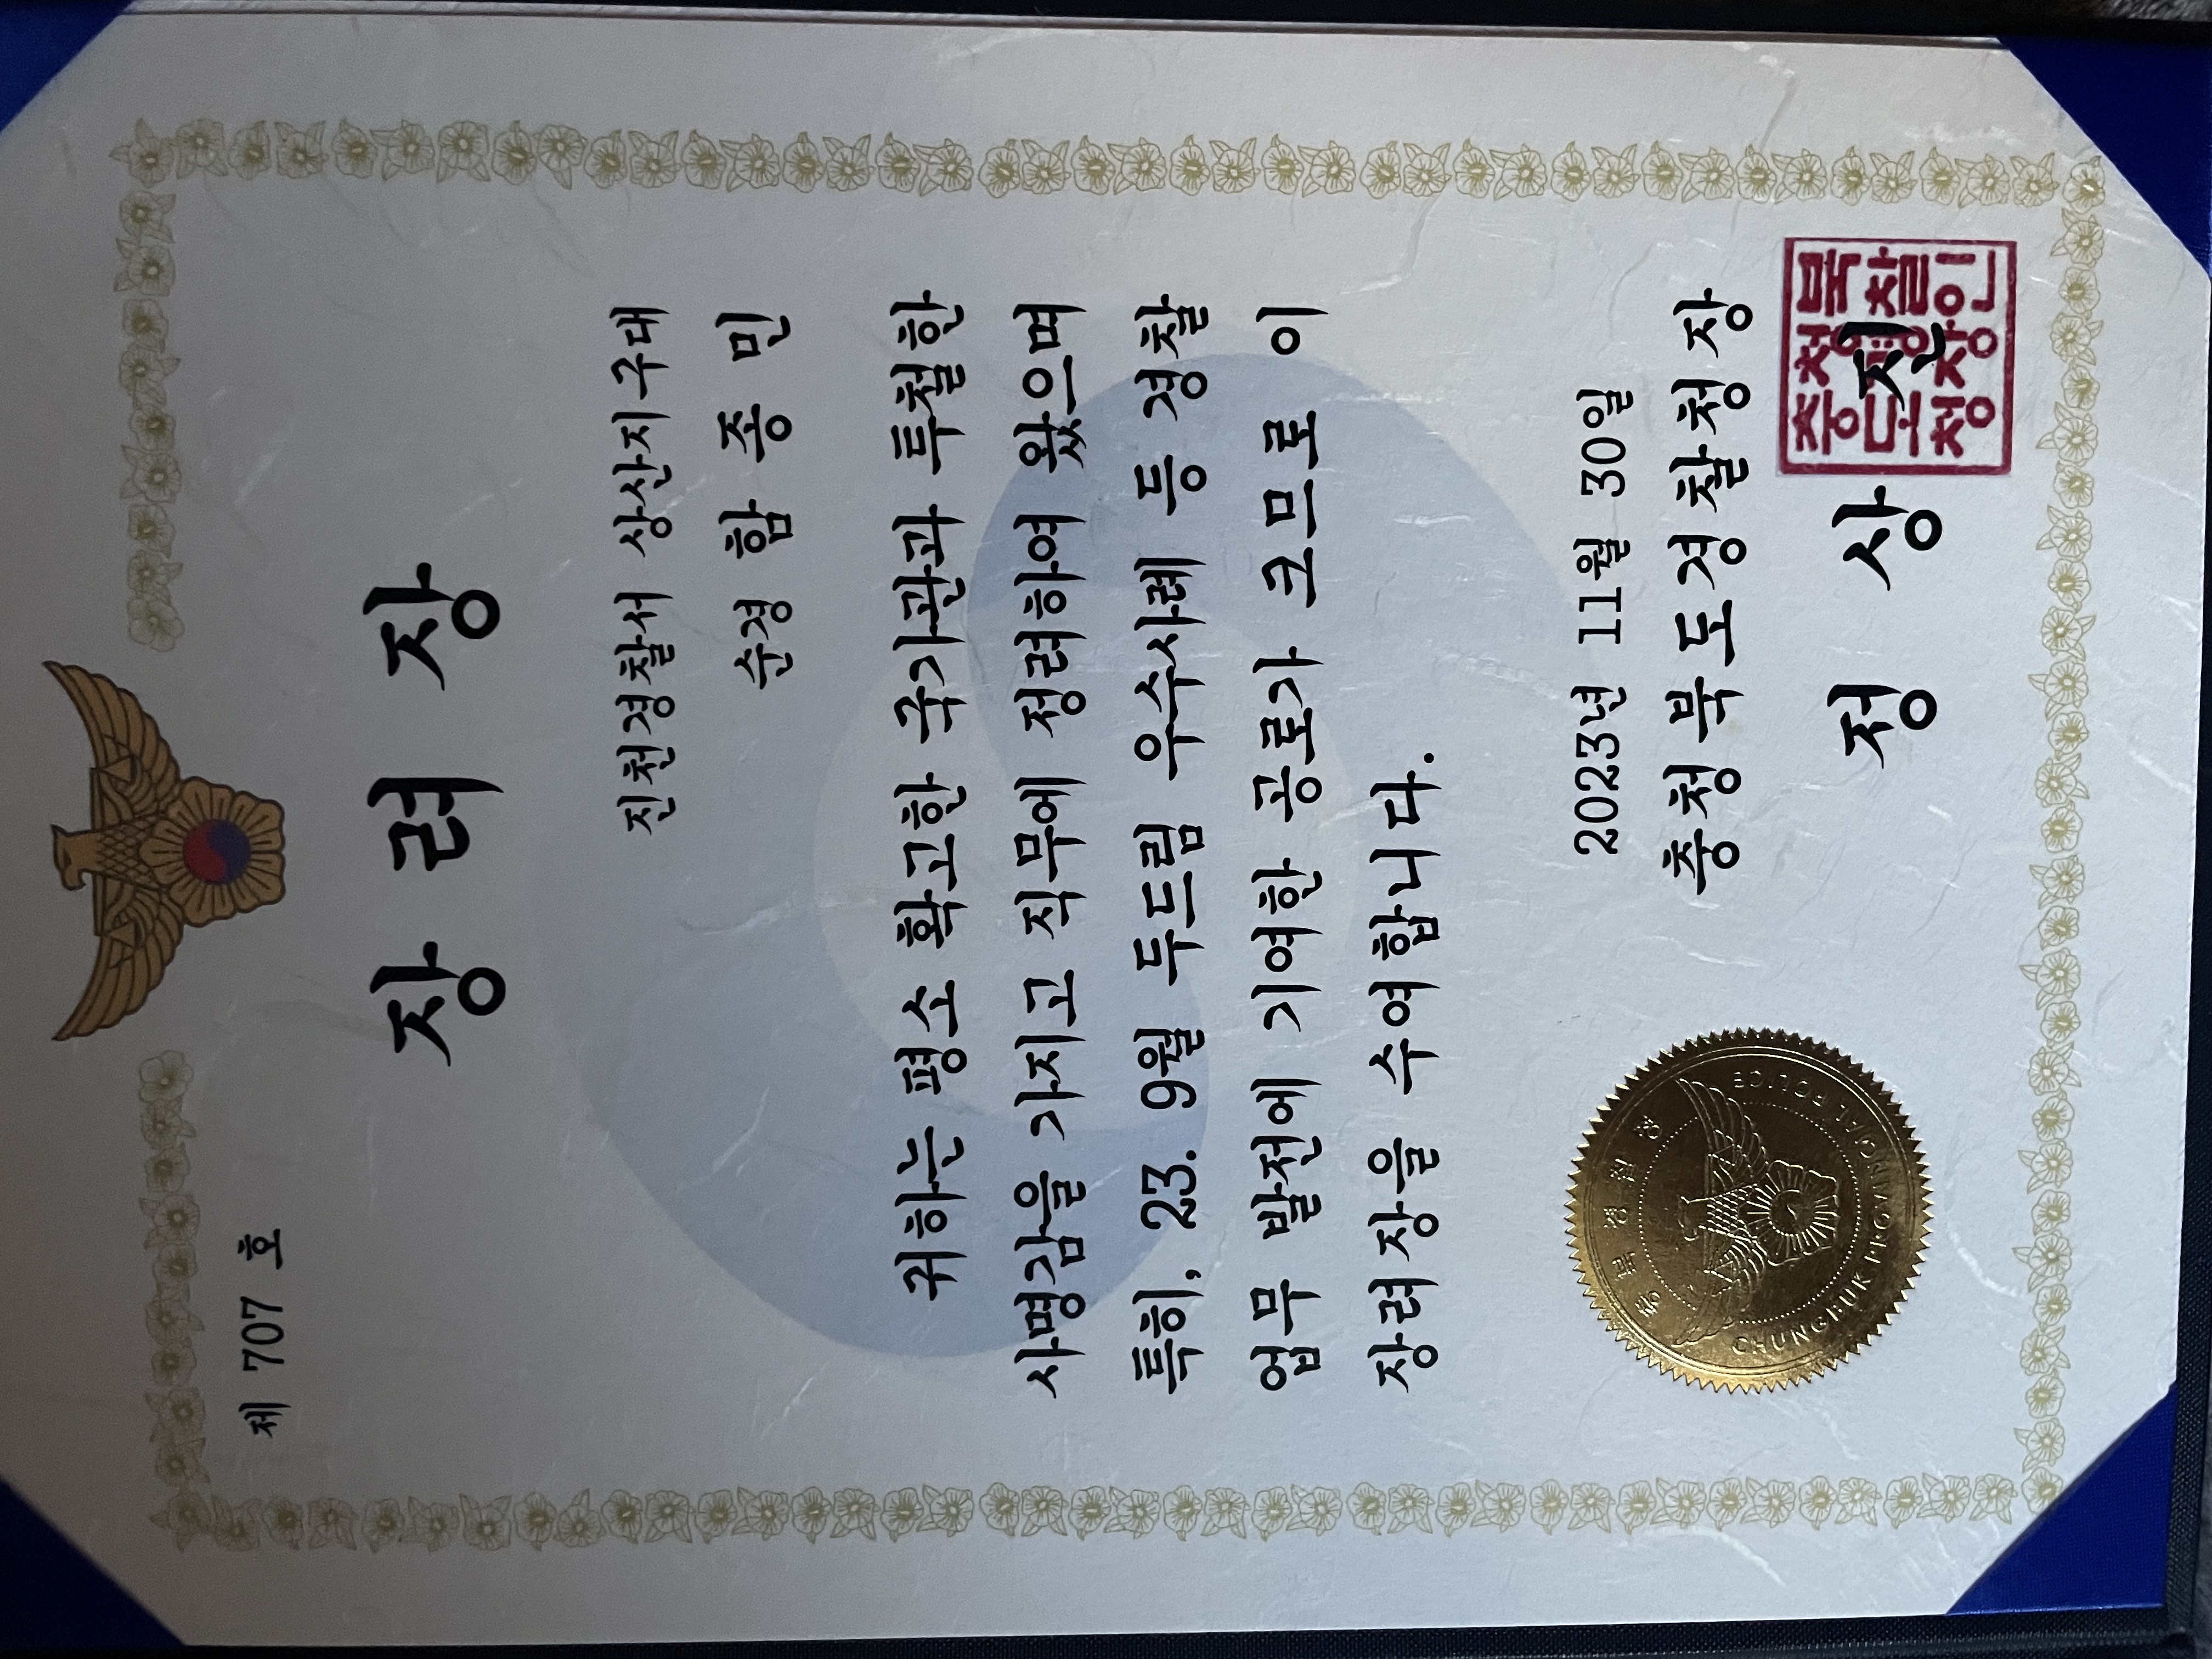 제 707 호
장 려 장
진천경찰서 상산지구대
순경 함 종 민
귀하는 평소 확고한 국가관과 투철한
사명감을 가지고 직무에 정려하여 왔으며
특히, 23. 9월 두드림 우수사례 등 경찰
업무 발전에 기여한 공로가 크므로 이
장려장을 수여합니다.
2023년 11월 30일
충청북도경찰청장
정 상 진
충청북
도경찰
청장인
충북경찰청
CHUNGBUK PROVINCIAL POLICE